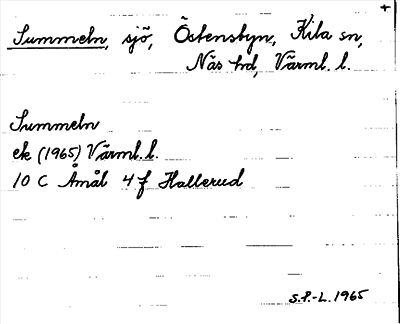 Summeln, sjö, Östenstyn, Kila sn,
Näs hd, Värml. l.
Summeln
ek (1965) Värml. l.
10 C Åmål 4 f Hallerud
S.P.-L. 1965